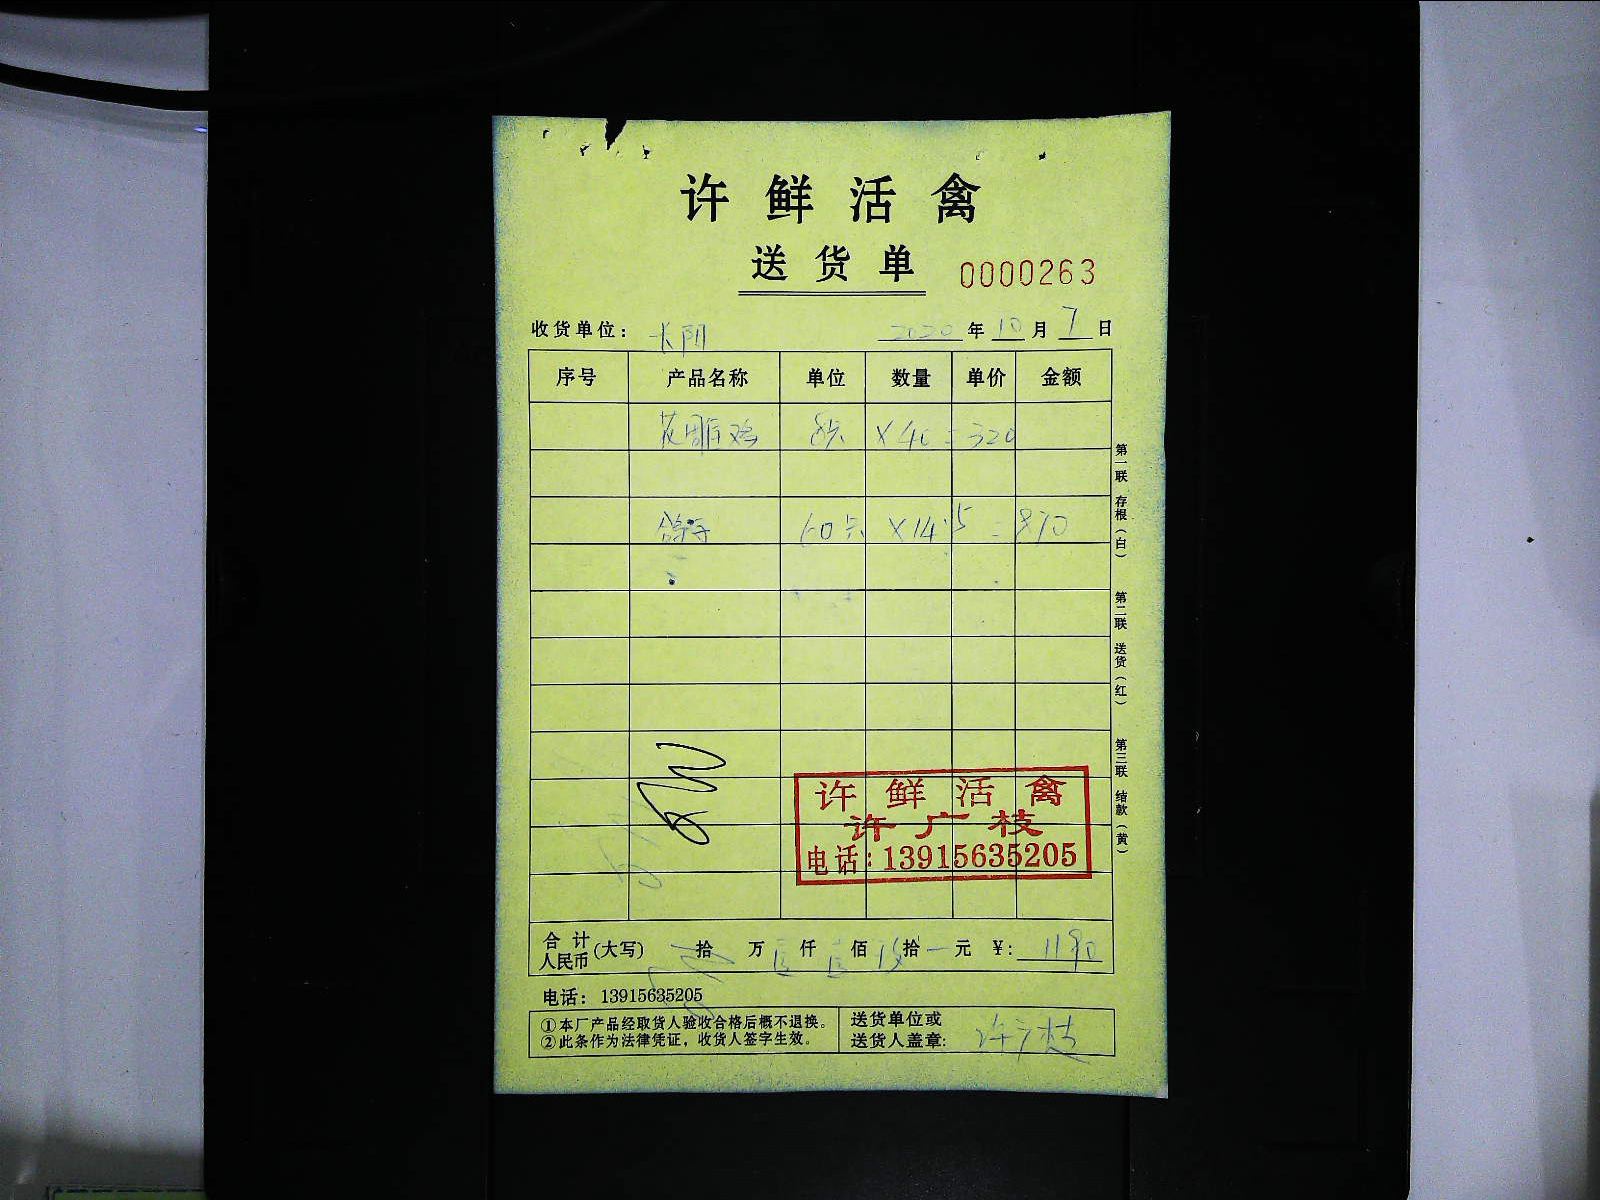 许鲜活禽
送货单 0000263
收货单位：长阴 2020年10月7日
序号 产品名称 单位 数量 单价 金额
花雕鸡 8只 ×40=320
鸽子 60只 ×14.5=870
第一联 存根（白）
第二联 送货（红）
第三联 结款（黄）
许鲜活禽
许广枝
电话：13915635205
合计人民币（大写） 拾 万 仟 佰 拾 元 ¥：1190
电话：13915635205
①本厂产品经取货人验收合格后概不退换。
②此条作为法律凭证，收货人签字生效。
送货单位或
送货人盖章：许广枝